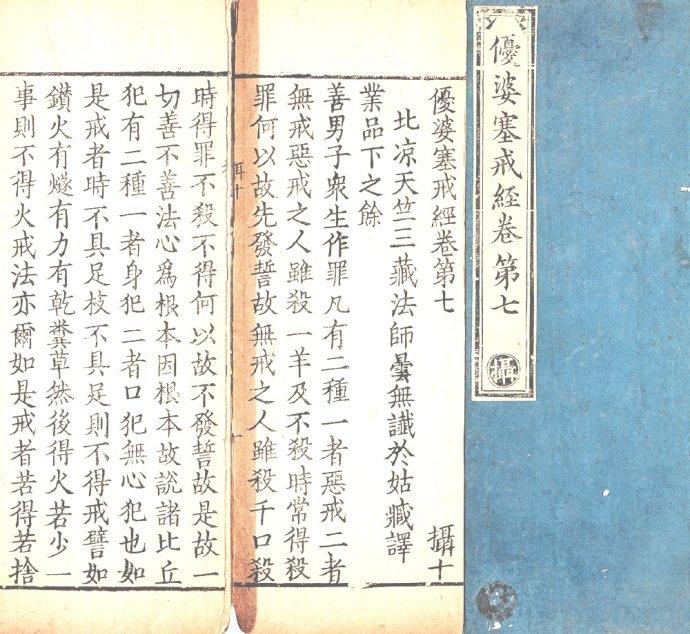 優婆塞戒經卷第七
攝
優婆塞戒經卷第七 攝十
北凉天竺三藏法師曇無讖於姑臧譯
業品下之餘
善男子衆生作罪凡有二種一者惡戒二者
無戒惡戒之人雖殺一羊及不殺時常得殺
罪何以故先發誓故無戒之人雖殺千口殺
時得罪不殺不得何以故不發誓故是故一
切善不善法心爲根本因根本故說諸比丘
犯有二種一者身犯二者口犯無心犯也如
是戒者時不具足枝不具足則不得戒譬如
鑽火有燧有力有乾糞草然後得火若少一
事則不得火戒法亦爾如是戒者若得若捨